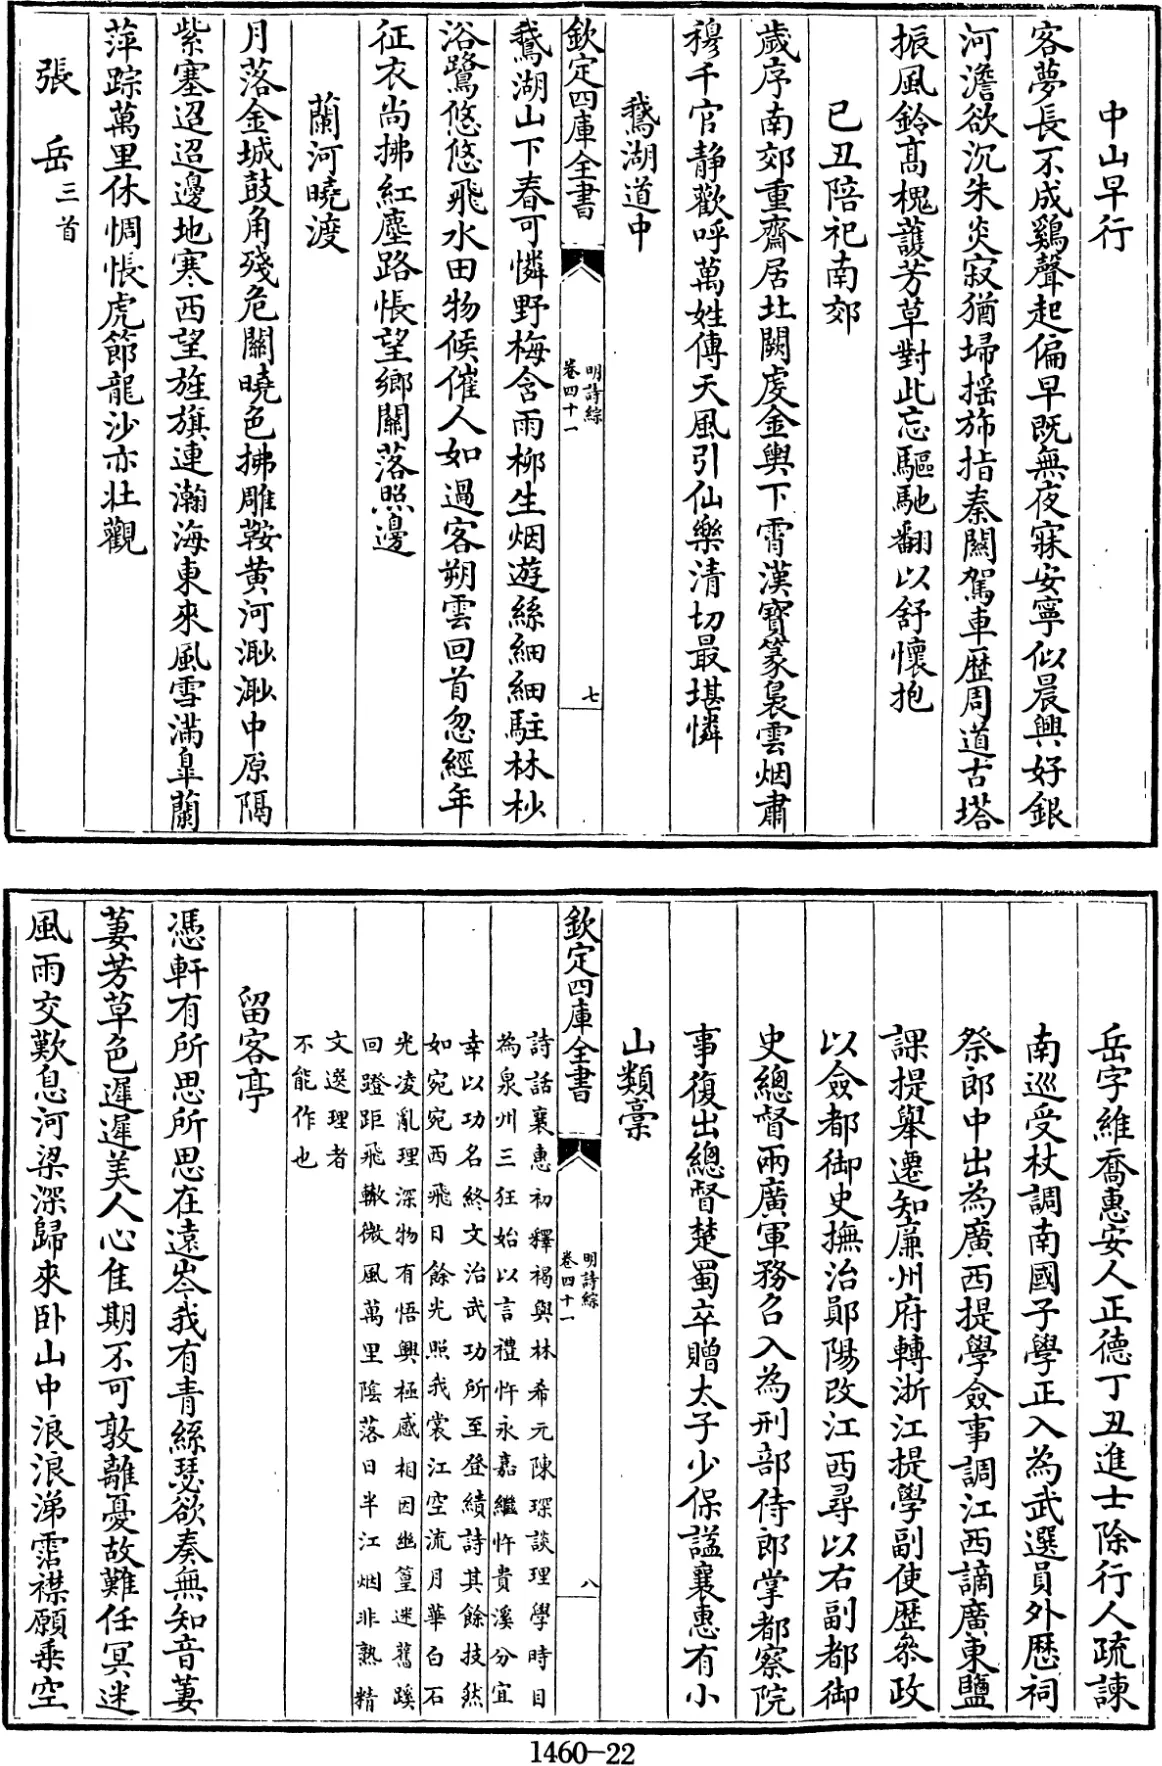 中山早行
客夢長不成鷄聲起偏早既無夜寐安寧似晨興好銀
河澹欲沉朱炎寂猶埽揺斾指秦闗駕車歴周道古塔
振風鈴髙槐䕶芳草對此忘驅馳翻以舒懷抱
己丑陪祀南郊
歲序南郊重齋居北闕䖍金輿下霄漢寳篆裊雲烟肅
穆千官静歡呼萬姓傳天風引仙樂清切最堪憐
鵞湖道中
欽定四庫全書
明詩綜
卷四十一
七
鵞湖山下春可憐野梅含雨柳生烟遊絲細細駐林杪
浴鷺悠悠飛水田物候催人如過客朔雲回首忽經年
征衣尚拂紅塵路悵望鄉關落照邊
蘭河曉渡
月落金城鼓角殘危關曉色拂雕鞍黄河渺渺中原隔
紫塞迢迢邊地寒西望旌旗連瀚海東來風雪滿臯蘭
萍踪萬里休惆悵虎節龍沙亦壯觀
張岳三首
岳字維喬惠安人正德丁丑進士除行人疏諫
南巡受杖調南國子學正入為武選員外歴祠
祭郎中出為廣西提學僉事調江西謫廣東鹽
課提舉遷知廉州府轉浙江提學副使歴參政
以僉都御史撫治鄖陽改江西尋以右副都御
史總督兩廣軍務召入為刑部侍郎掌都察院
事復出總督楚蜀卒贈太子少保諡襄惠有小
山類稾
欽定四庫全書
明詩綜
卷四十一
八
詩話襄惠初釋褐與林希元陳琛談理學時目
為泉州三狂始以言禮忤永嘉繼忤貴溪分宜
幸以功名終文治武功所至登績詩其餘技然
如宛宛西飛日餘光照我裳江空流月華白石
光凌亂理深物有悟興極感相因幽篁迷舊蹊
回蹬距飛轍微風萬里陰落日半江烟非熟精
文選理者
不能作也
留客亭
憑軒有所思所思在遠岑我有青絲瑟欲奏無知音萋
萋芳草色遲遲美人心佳期不可敦離憂故難任冥迷
風雨交歎息河梁深歸來卧山中浪浪涕霑襟願乗空
1460-22